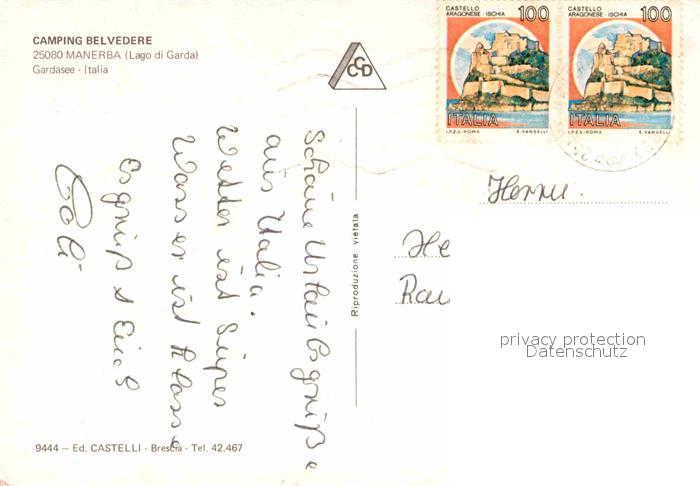 CAMPING BELVEDERE
25080 MANERBA (Lago di Garda)
Gardasee - Italia
CCD
CASTELLO
ARAGONESE - ISCHIA
100
ITALIA
I.P.Z.S. - ROMA E. VANGELLI
CASTELLO
ARAGONESE - ISCHIA
100
ITALIA
I.P.Z.S. - ROMA E. VANGELLI
Schöne Urlaubsgrüße
aus Italia.
Wetter ist Super
Wasser ist Klasse
Es grüßt Euch
Riproduzione vietata
Herrn
He
Rai
privacy protection
Datenschutz
9444 — Ed. CASTELLI - Brescia - Tel. 42.467